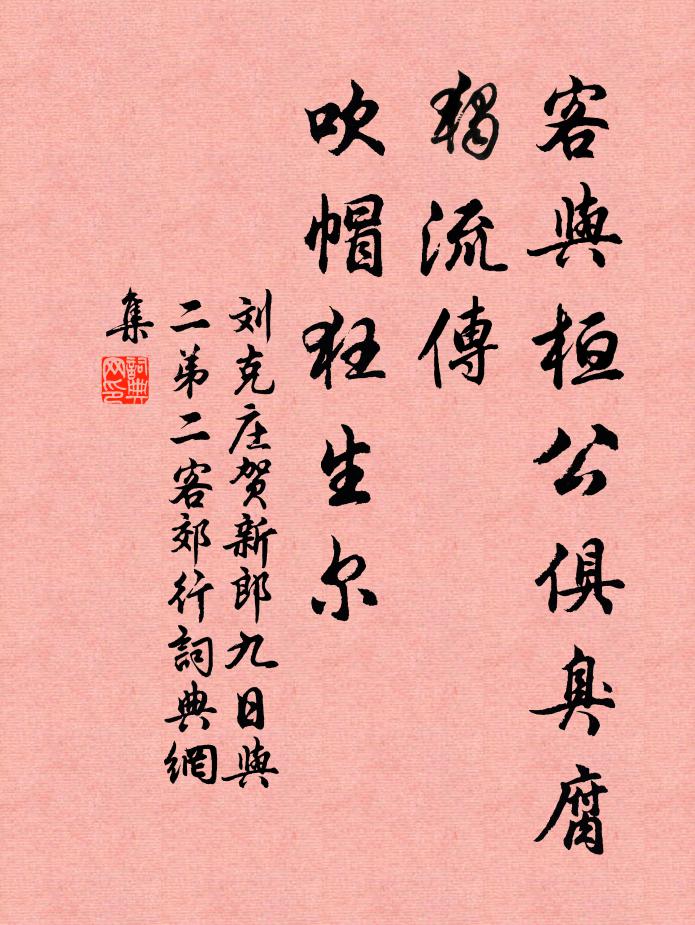 客與桓公俱臭腐
獨流傳
吹帽狂生尔
刘克庄贺新郎九日與
二弟二客郊行詞典網
集
詞典網印